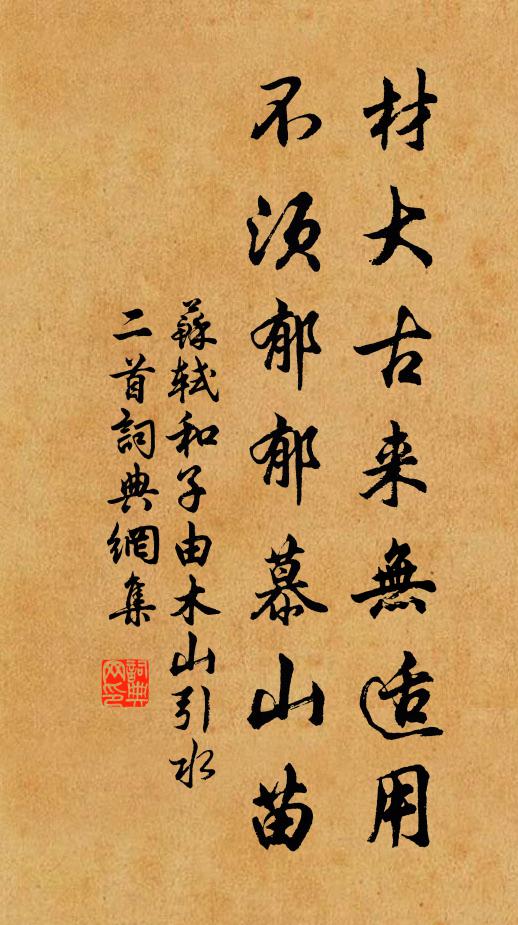 材大古来無适用
不須郁郁慕山苗
蘇軾和子由木山引水
二首詞典網集
詞典
网印